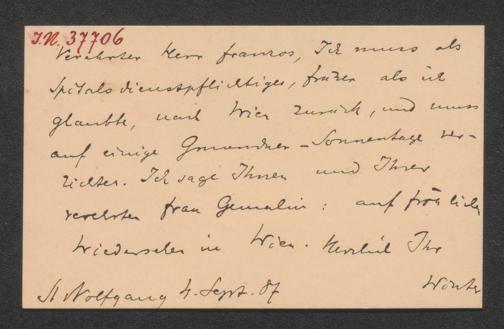 I.N. 37706
Verehrter Herr Franzos, Ich muss als
Spitalsdienstpflichtiger, früher als ich
glaubte, nach Wien zurück, und muss
auf einige Gmundner-Sonnentage ver-
zichten. Ich sage Ihnen und Ihrer
verehrten Frau Gemalin: auf frölich
Wiedersehen in Wien. Herzlich Ihr
St Wolfgang 4. Sept. 87